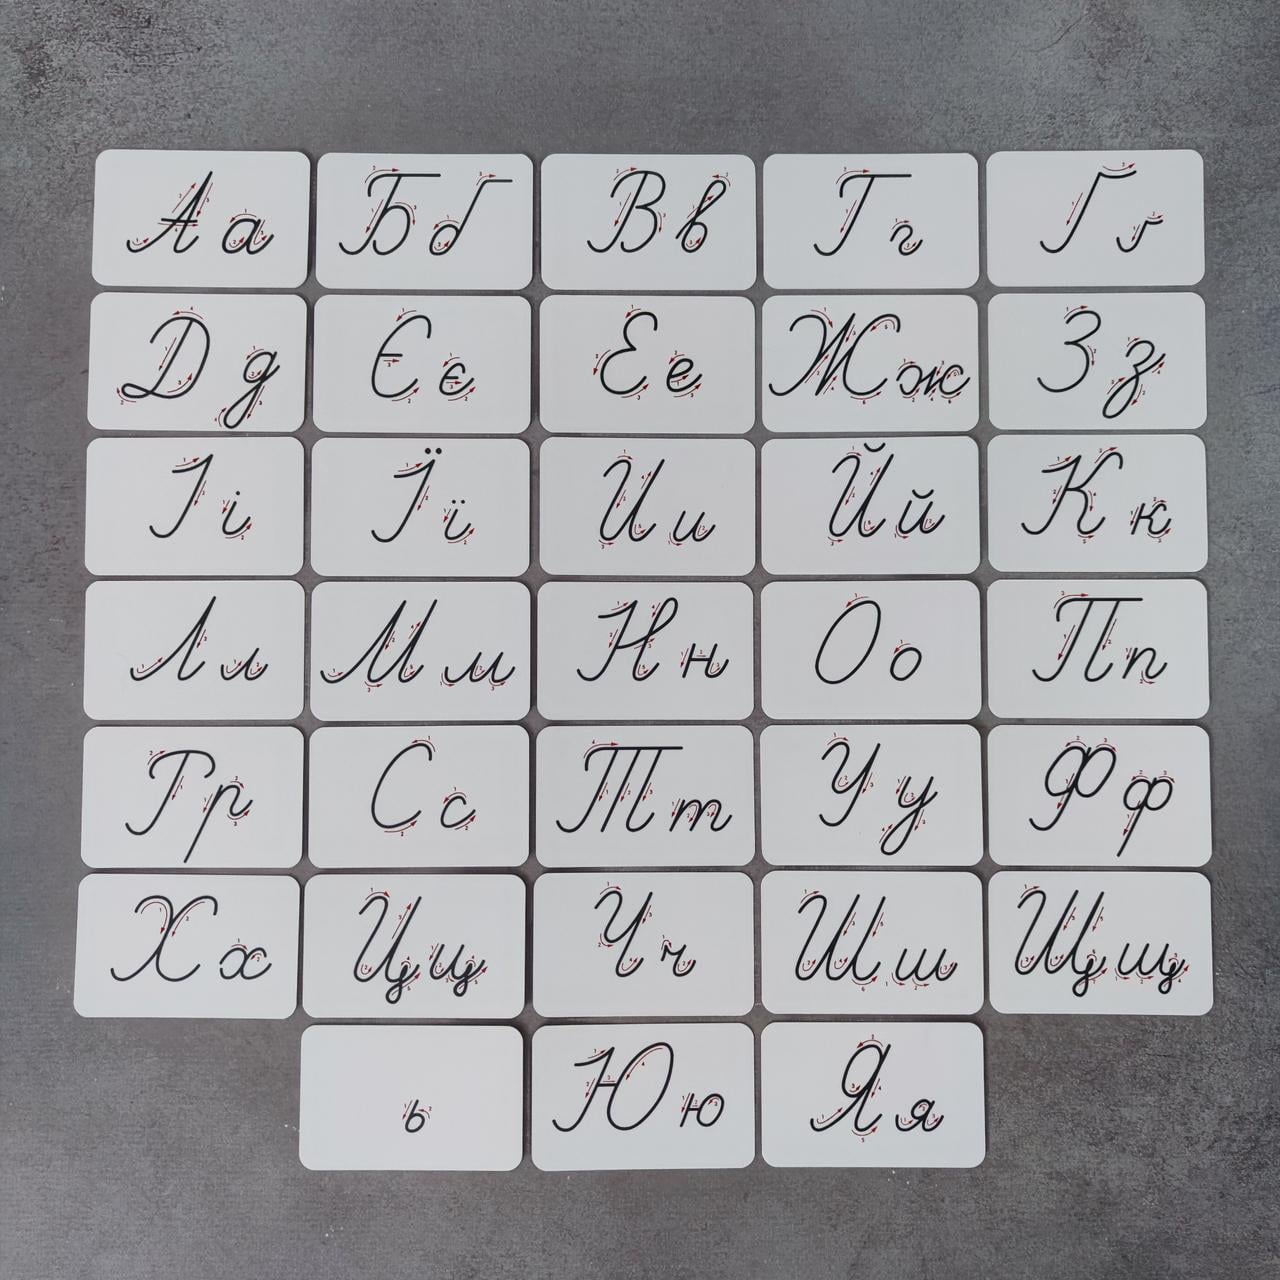 Аа Бб Вв Гг Ґґ
Дд Єє Ее Жж Зз
Іі Її Ии Йй Кк
Лл Мм Нн Оо Пп
Рр Сс Тт Уу Фф
Хх Цц Чч Шш Щщ
ь Юю Яя